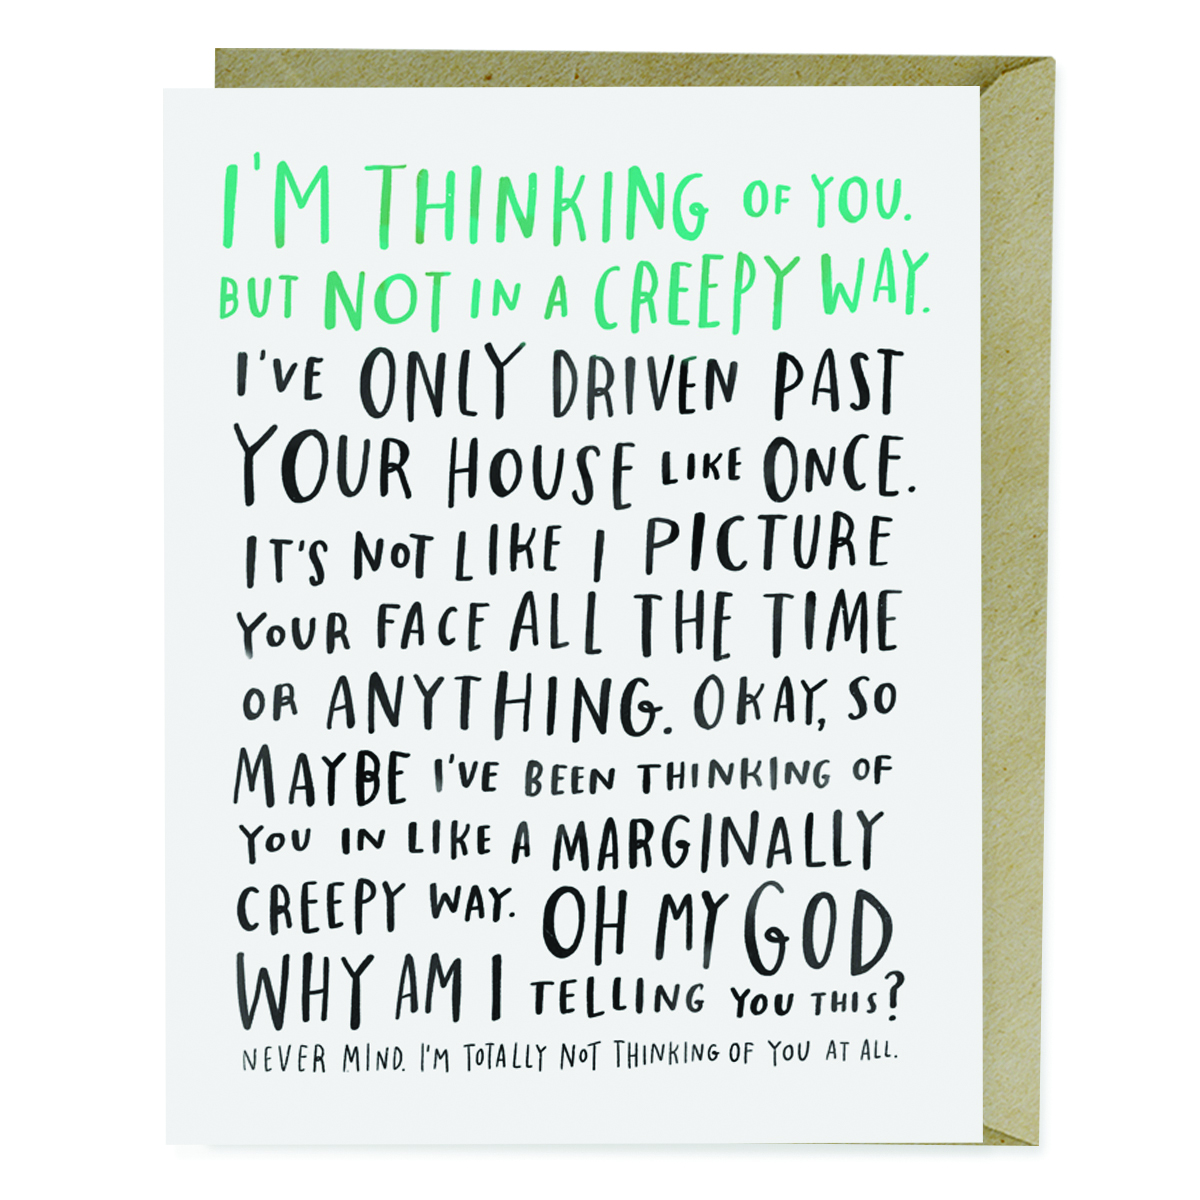 I'M THINKING OF YOU.
BUT NOT IN A CREEPY WAY.
I'VE ONLY DRIVEN PAST
YOUR HOUSE LIKE ONCE.
IT'S NOT LIKE I PICTURE
YOUR FACE ALL THE TIME
OR ANYTHING. OKAY, SO
MAYBE I'VE BEEN THINKING OF
YOU IN LIKE A MARGINALLY
CREEPY WAY. OH MY GOD
WHY AM I TELLING YOU THIS?
NEVER MIND. I'M TOTALLY NOT THINKING OF YOU AT ALL.